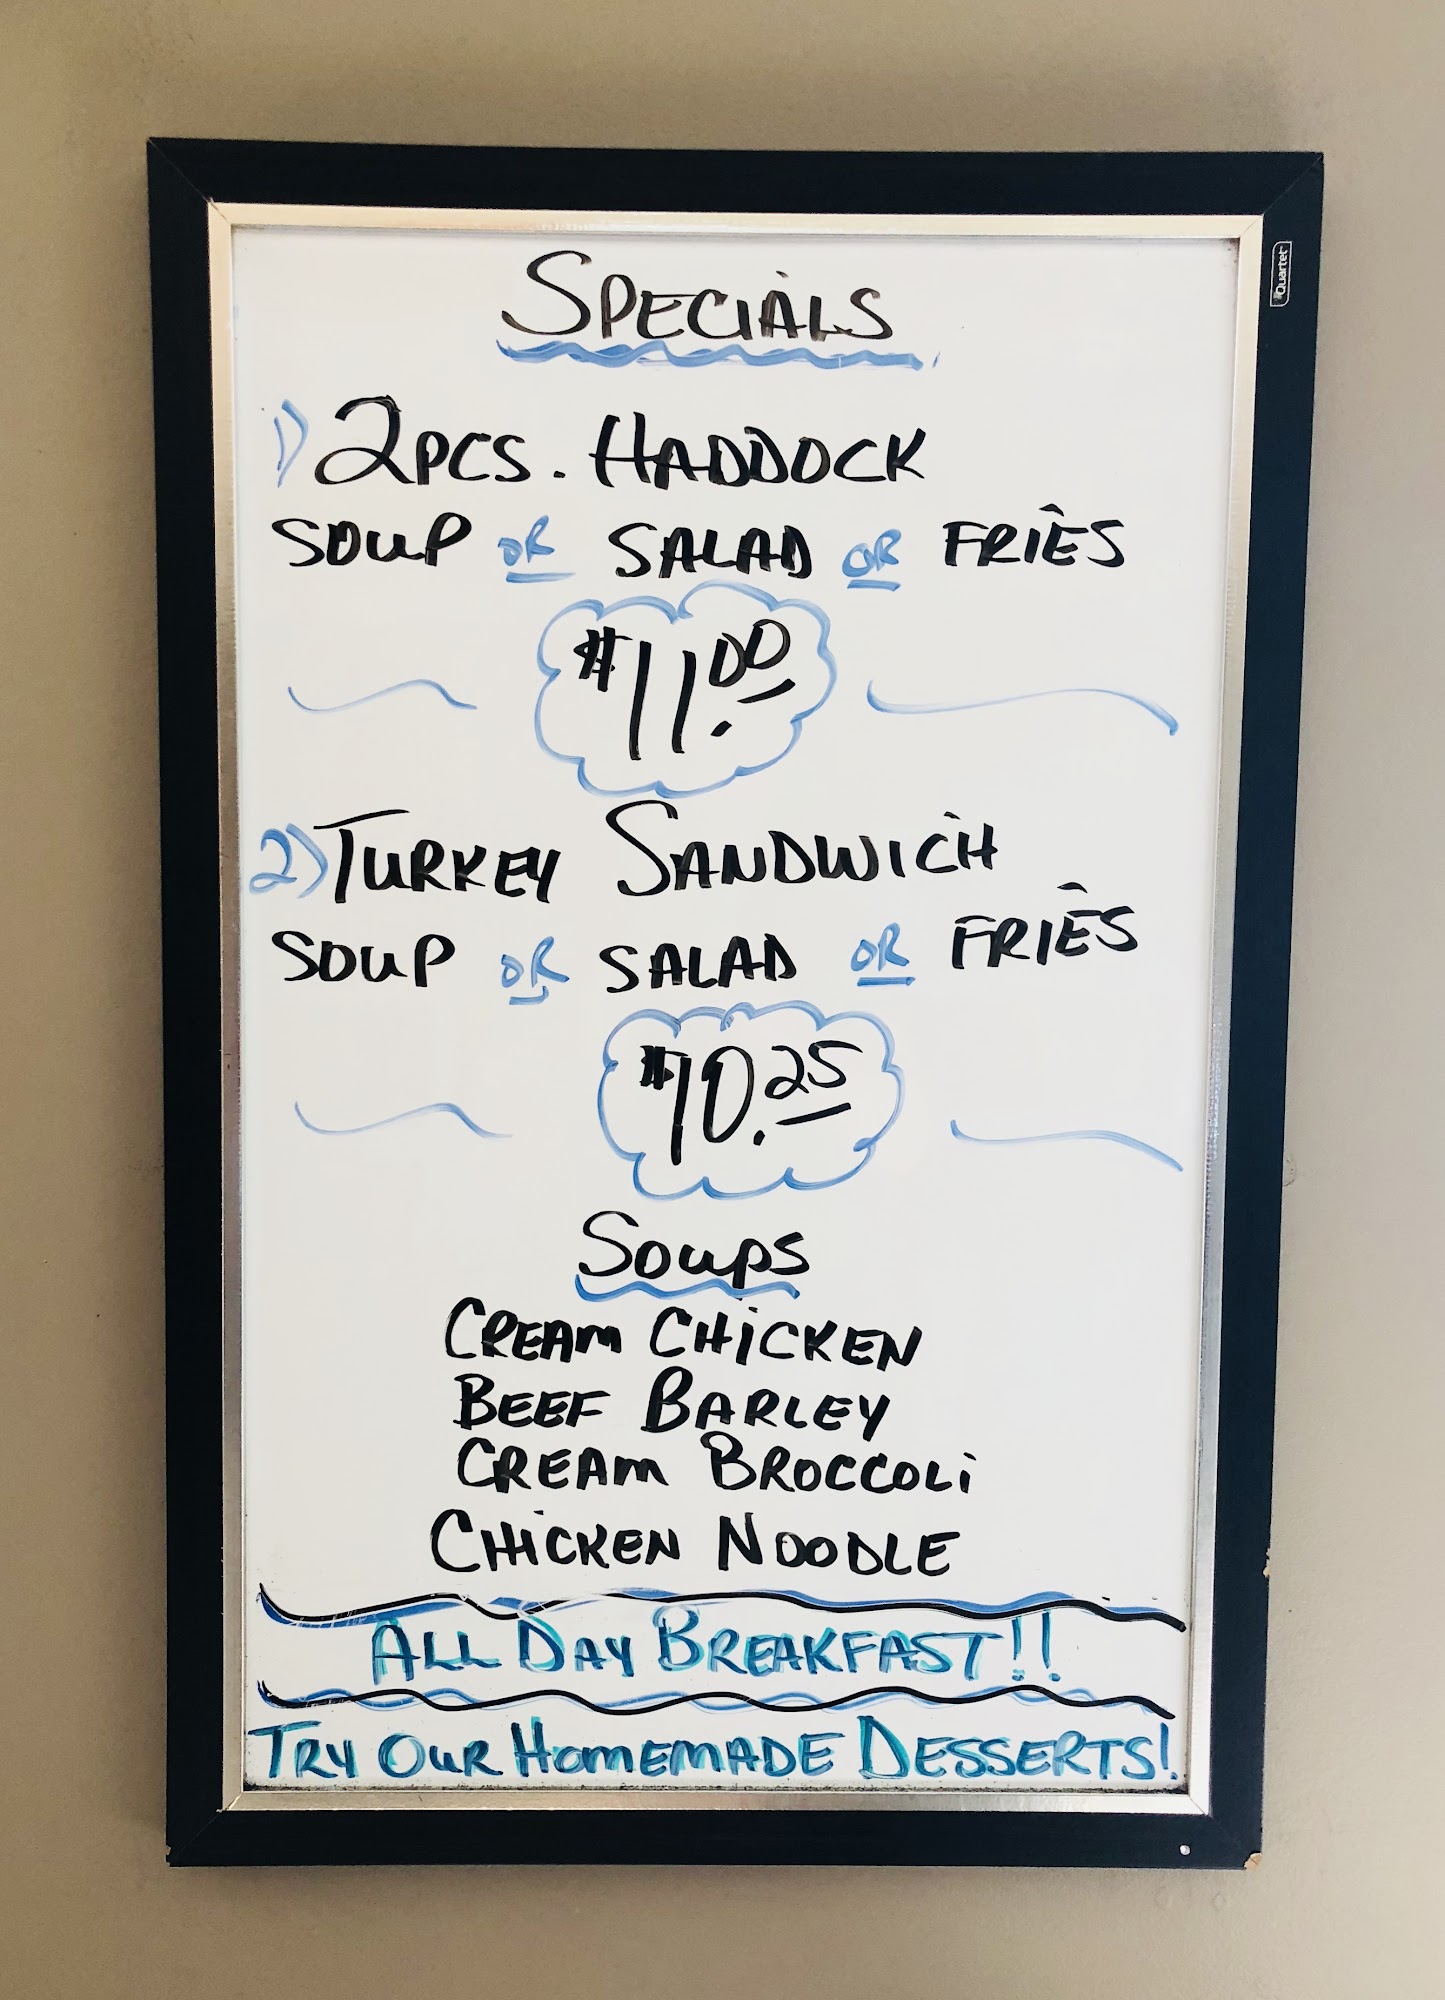 Quartet
SPECiALS
1) 2PCS. HADDOCK
SOUP OR SALAD OR FRiES
$11.00
2) TURKEY SANDWiCH
SOUP OR SALAD OR FRiES
$10.25
Soups
CREAM CHiCKEN
BEEF BARLEY
CREAM BROCCOLi
CHiCKEN NOODLE
ALL DAY BREAKFAST!!
TRY OUR HOMEMADE DESSERTS!